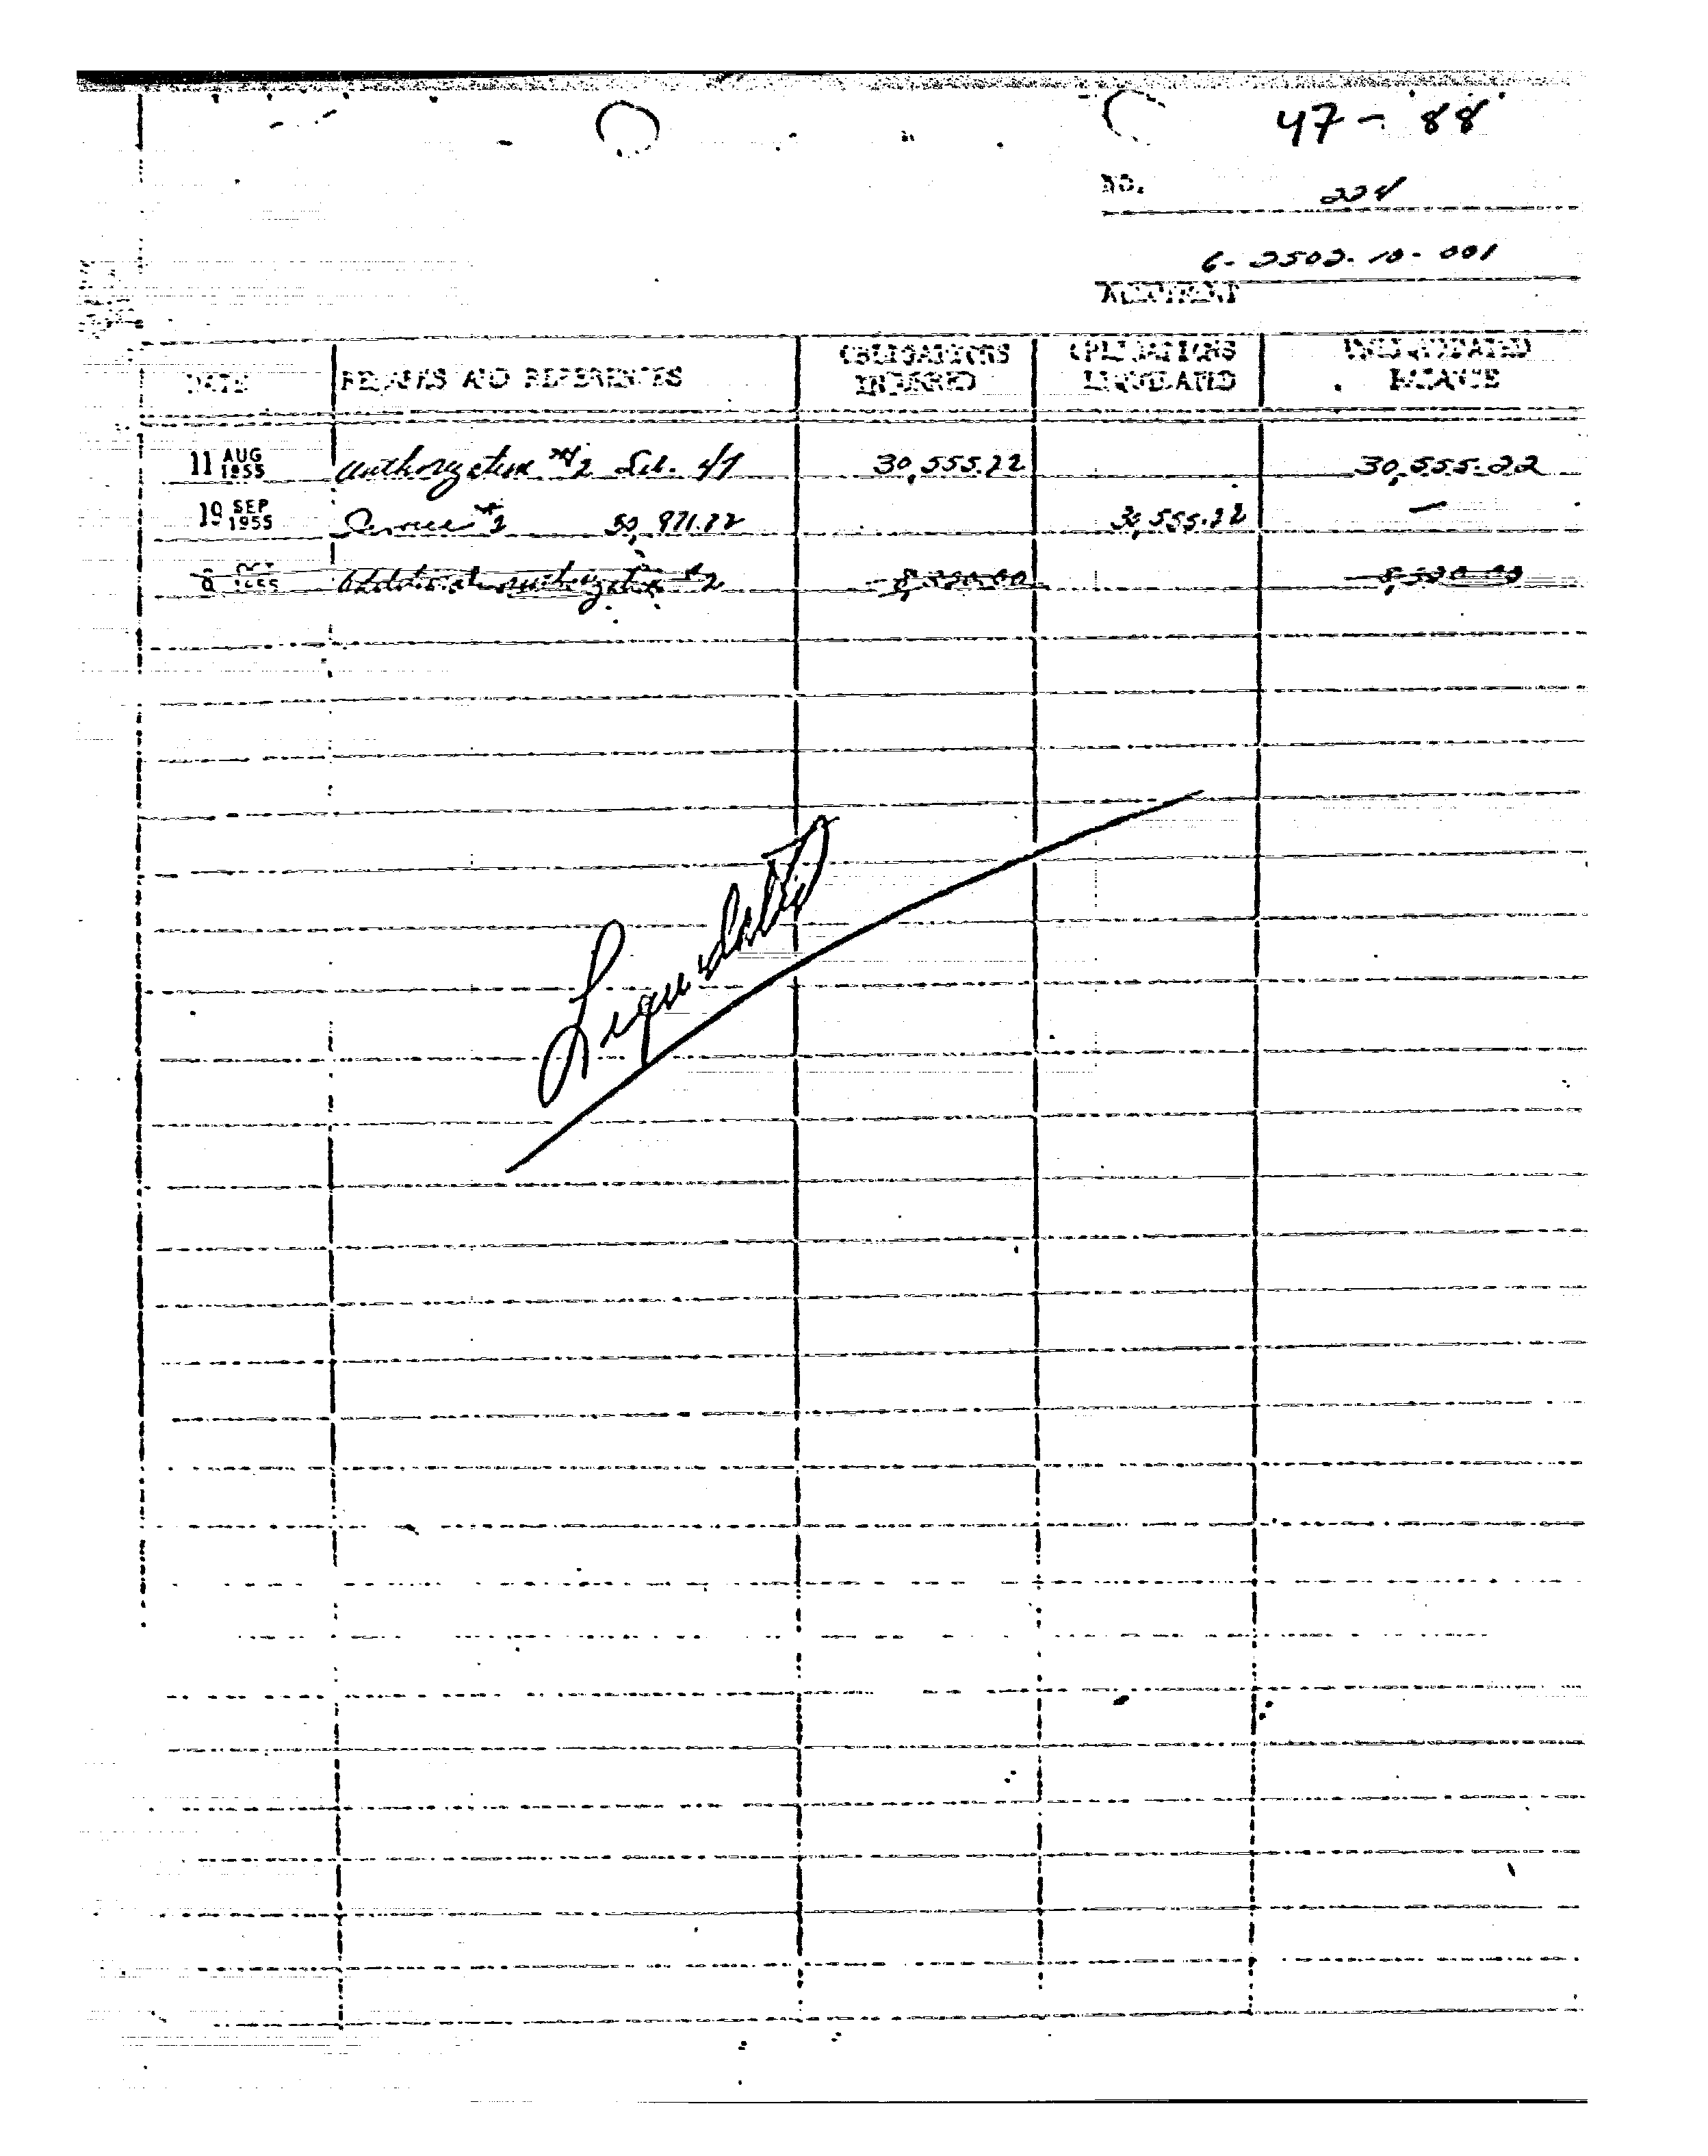 47-88
NO. 224
6-2502-10-001
ALLOTMENT
DATE REMARKS AND REFERENCES OBLIGATIONS INCURRED OBLIGATIONS LIQUIDATED UNLIQUIDATED BALANCE
11 AUG 1955 Authorization #2 Sub. 47 30,555.22 30,555.22
19 SEP 1955 #2 50,971.22 30,555.22 —
OCT 1955 Additional authorization #2
Liquidated